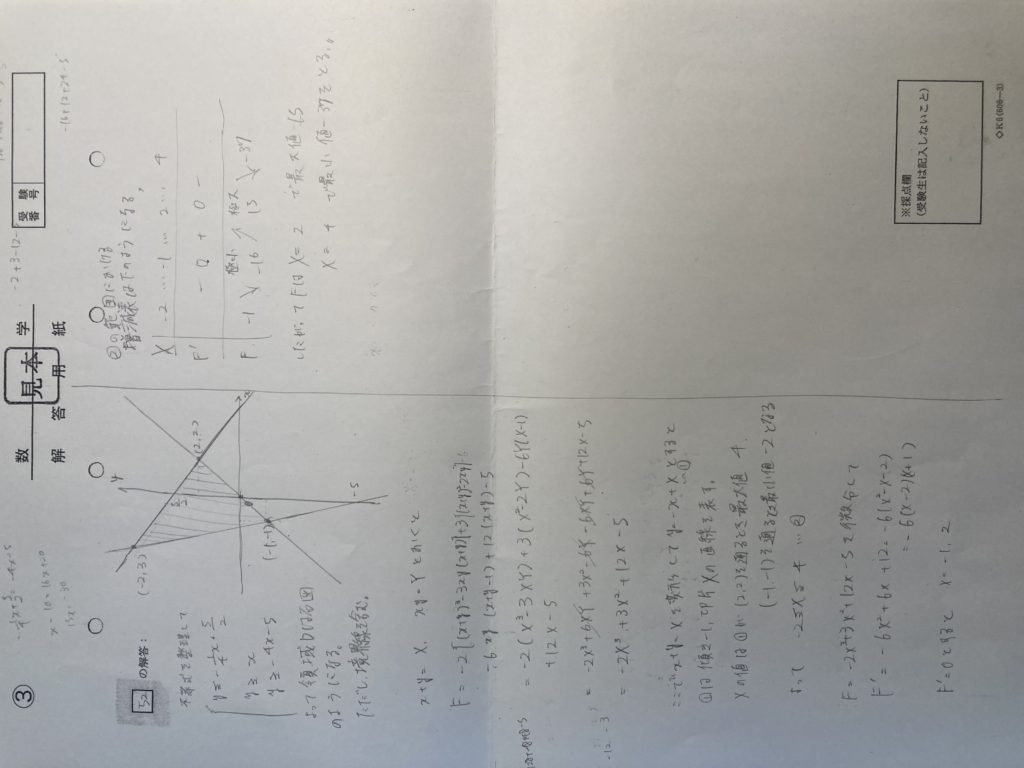 ③
数学
見本
解答用紙
受験番号
-2+3-12-
-16+12+24-5
x-10=16x+20
15x=-30
5-2 の解答：
不等式を整理して
y≦-1/4x+5/2
y≧x
y≧-4x-5
よって領域Dは右図
のようになる。
ただし、境界線含む。
(-2,3)
y
5/2
(2,2)
x
0
(-1,-1)
-5
x+y=X, xy=Yとおくと
-6xy(x+y-1)+12(x+y)-5
=-2(X³-3XY)+3(X²-2Y)+6Y(X-1)
+12X-5
=-2X³+6XY+3X²-6Y-6XY+6Y+12X-5
=-2X³+3X²+12X-5
①は傾き-1, 切片Xの直線を表す。
Xの値は①が(2,2)を通るとき最大値 4,
(-1,-1)を通るとき最小値-2となる
よって -2≦X≦4 …②
F=-2X³+3X²+12X-5を微分して
F'=-6X²+6X+12=-6(X²-X-2)
=-6(X-2)(X+1)
F'=0とするとX=-1,2
②の範囲における
増減表は下のようになる,
X -2 … -1 … 2 … 4
F' - 0 + 0 -
F -1 ↘ 極小 -16 ↗ 極大 15 ↘ -37
したがってFはX=2で最大値15
X=4で最小値-37をとる。
※採点欄
(受験生は記入しないこと)
◇K8(608―3)